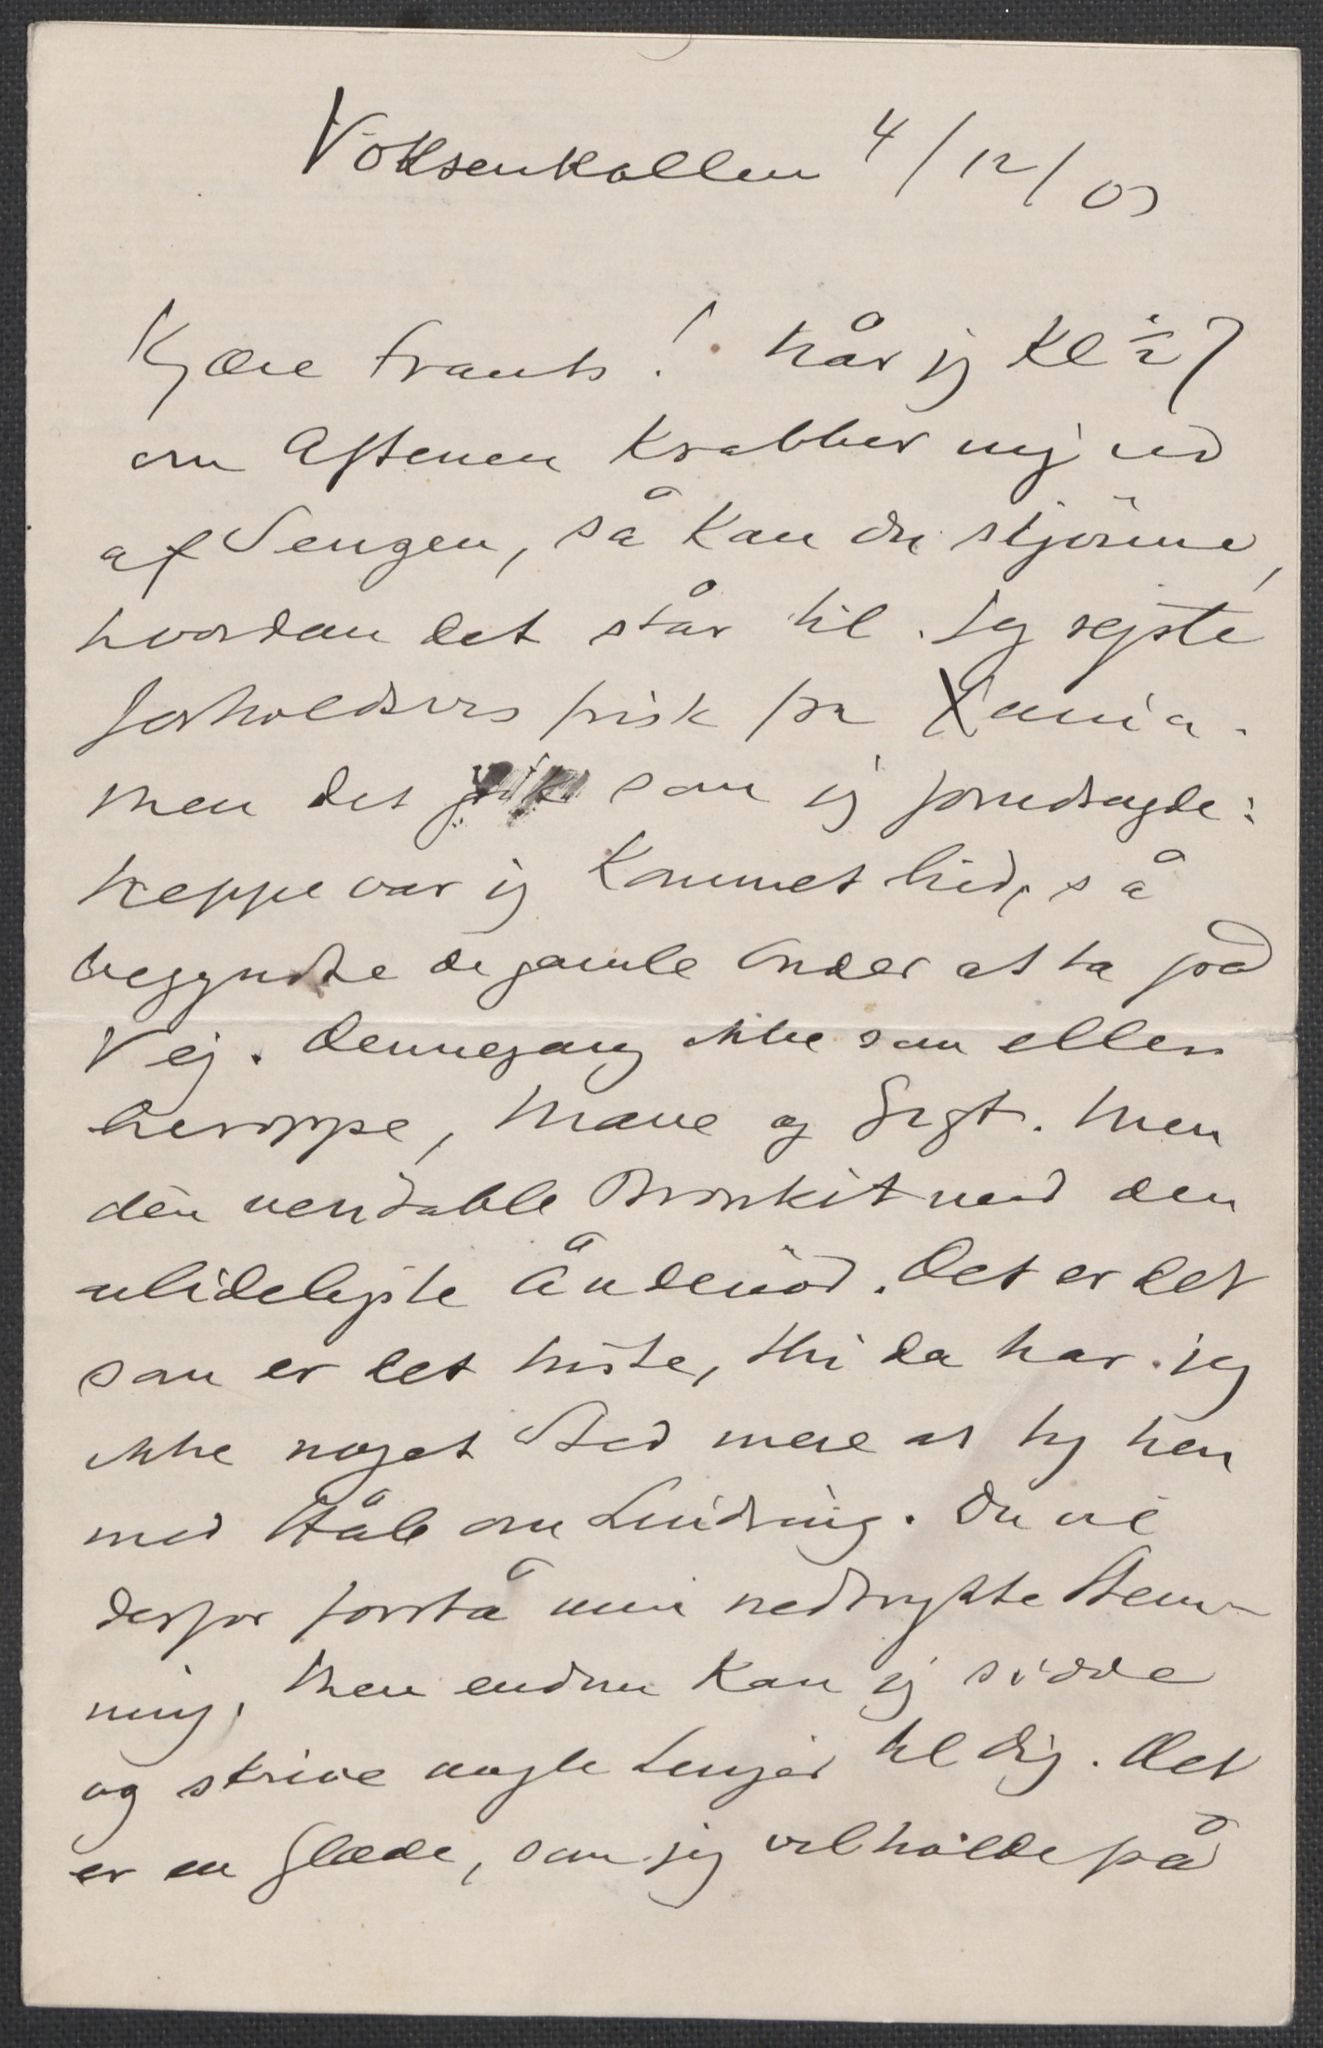 Voksenkollen 4/12/03
Kjære Frants! Når jeg Kl ½ 7
om Aftenen krabber mig ud
af Sengen, så kan du skjönne,
hvordan det står til. Jeg rejste
forholdsvis frisk fra Xania.
Men det gik som jeg forudsagde:
Neppe var jeg kommet hid, så
begyndte de gamle Onder at ta på
Vej. Dennegang ikke som ellers
heroppe, Mave og Gigt. Men
den veritable Bronkit med den
ulideligste Åndenöd. Det er det
som er det triste, thi da har jeg
ikke noget Sted mere at ty hen
med Håb om Lindring. Du vil
derfor forstå min nedtrykte Stem-
ning. Men endnu kan jeg sidde
og skrive nogle Linjer til dig. Det
er en Glæde, som jeg vil holde på